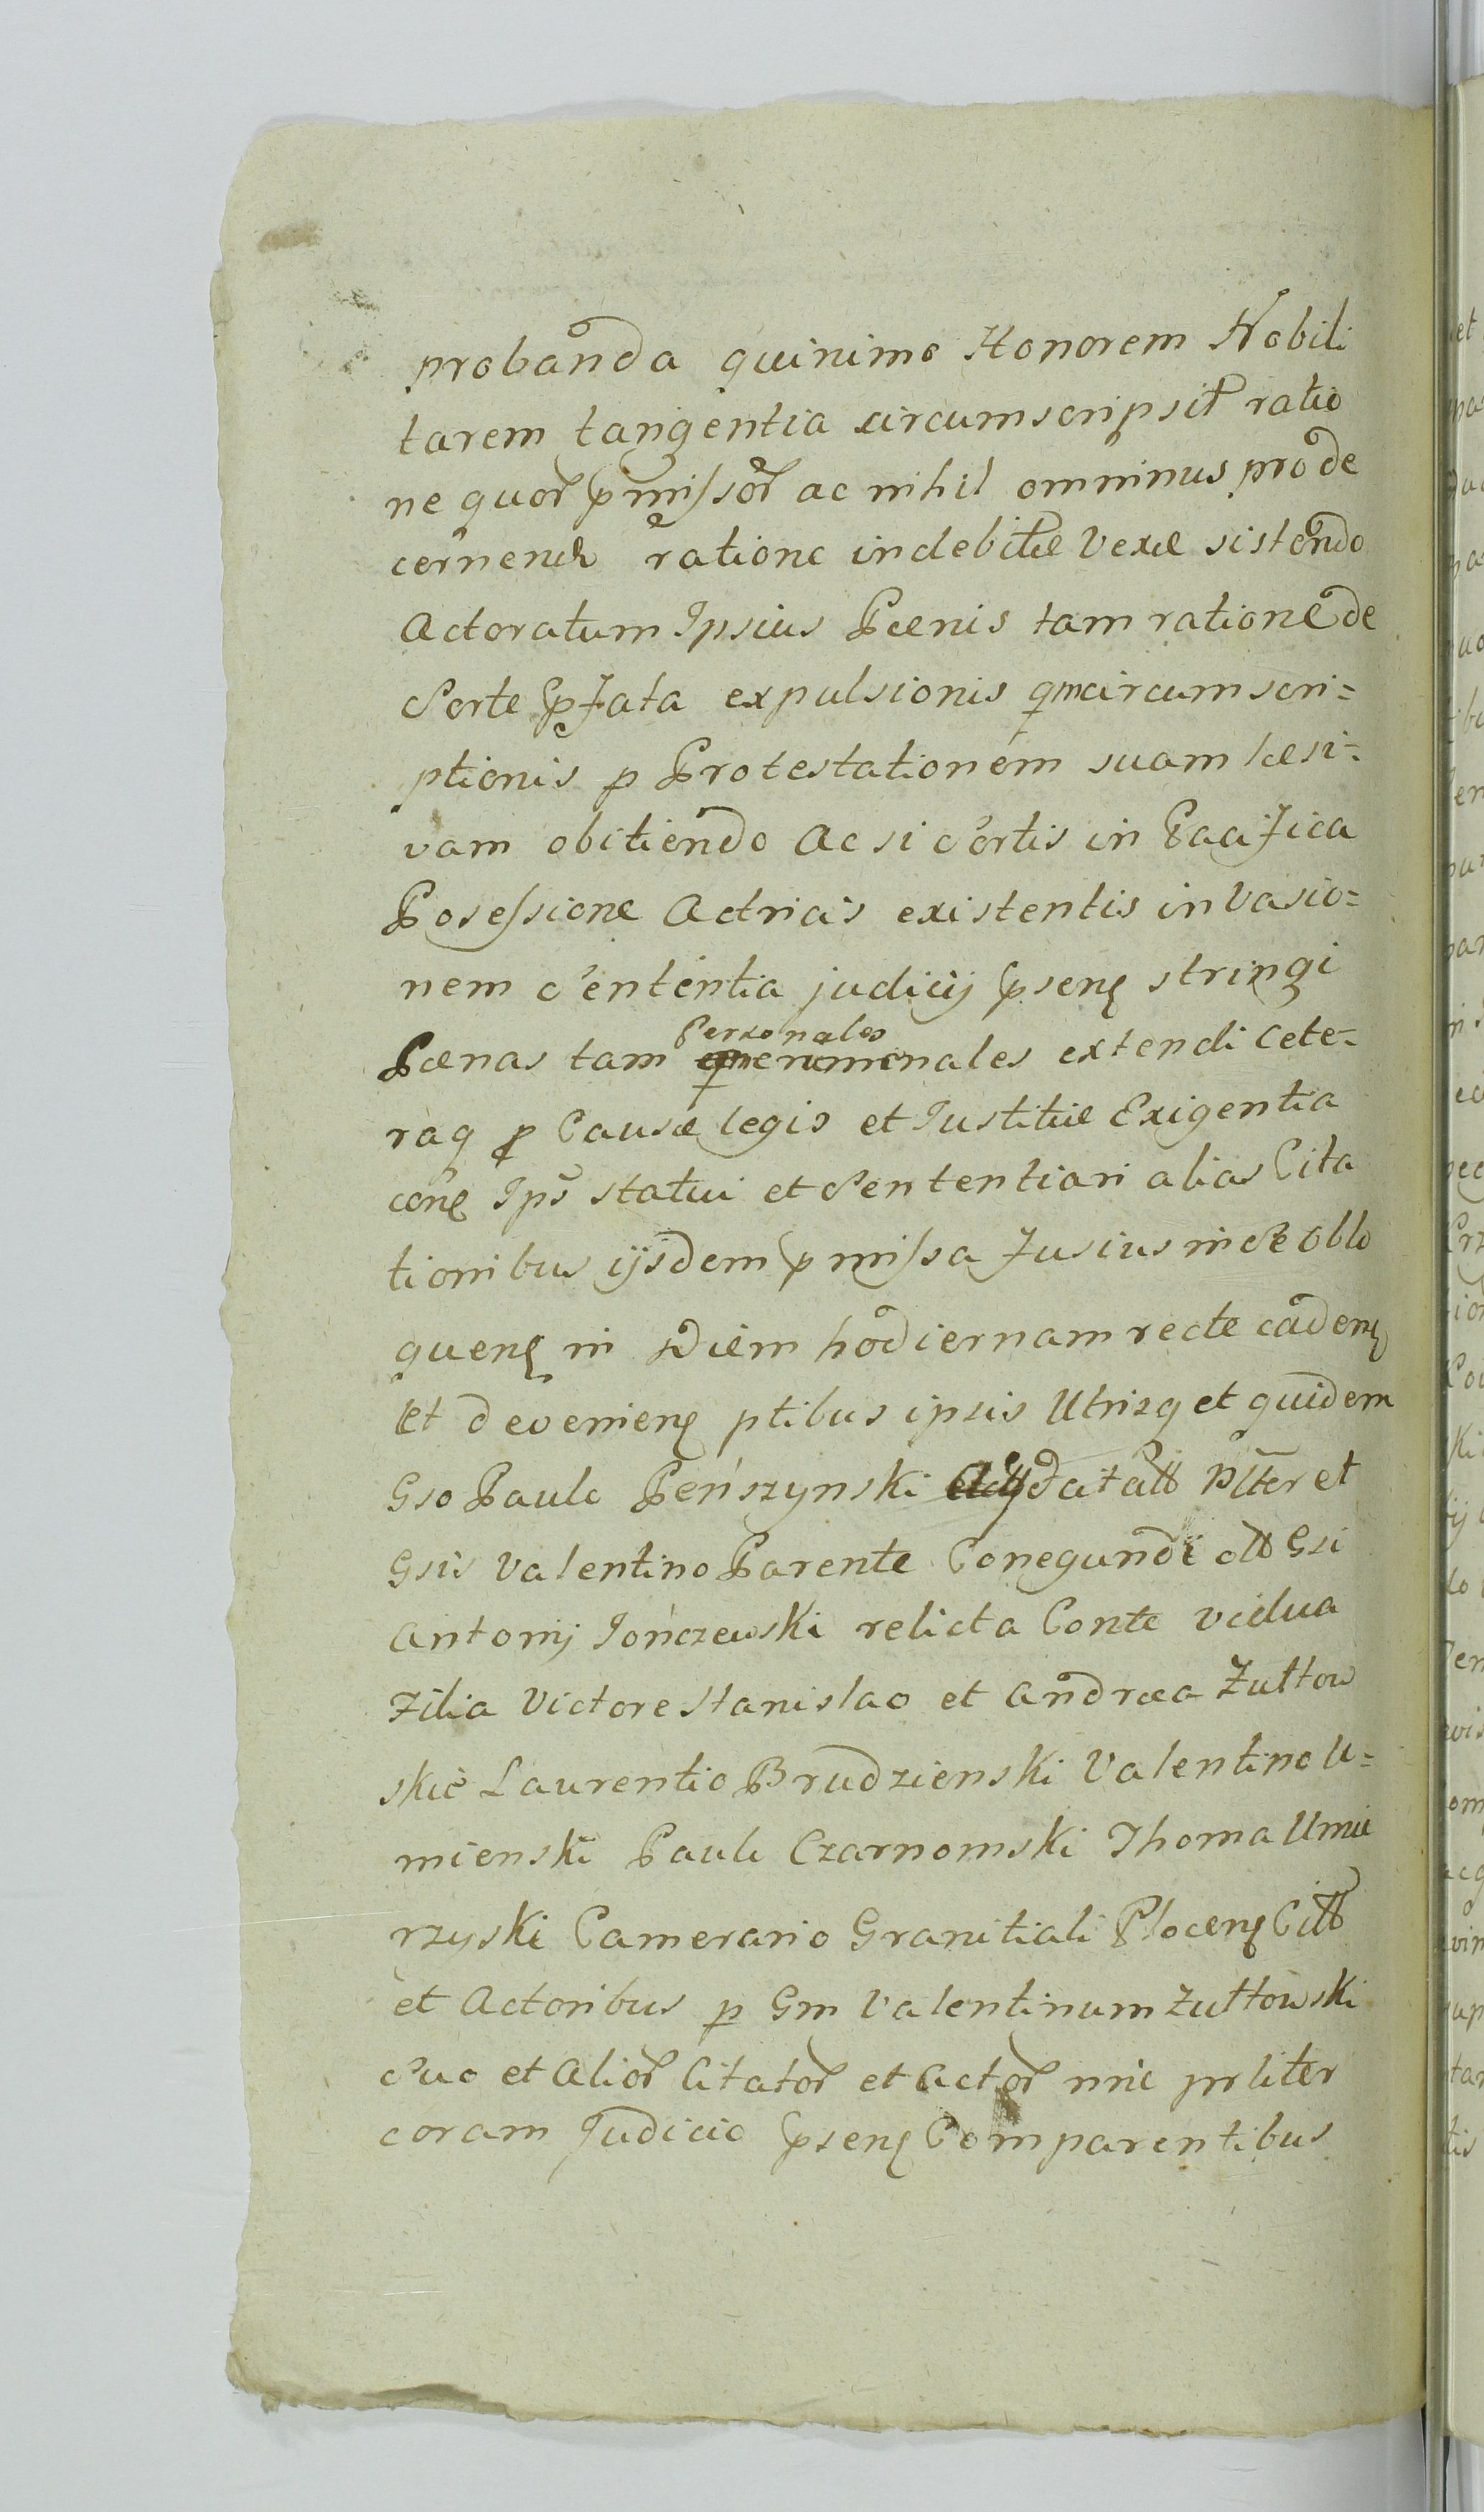 probanda quinimo Honorem Nobili
tarem tangentia circumscripsit ratio
ne quor pmissor ac nihil ominus pro de
cernend ratione indebitæ Vexæ sistendo
Actoratum Ipsius Pænis tam ratione de
Sorte pfata expulsionis qm circumscri=
ptionis p Protestationem suam læsi=
vam obitiendo Ac si Sortis in Pacifica
Possessione Actricis existentis invasio=
nem Sententia judicij psenq stringi
Pænas tam Personales qm criminales extendi cete=
raq p Causæ legis et Iustitiæ Exigentia
cerng Ips statui et Sententiari alias Cita
tionibus ijsdem pmissa fusius in Se Oblo
quenq in Diem hodiernam recte cadenq
Et devenienq ptibus ipsis Utrisq et quidem
Gso Paulo Peńszynski Citato et
Gsis Valentino Parente Conegundi olt Gsi
Antonij Jończewski relicta Conte vidua
Filia Victore Stanislao et Andræa Żułtow
skie Laurentio Brudzienski Valentino U=
mienski Paulo Czarnomski Thoma Umie
rzyski Camerario Granitiali Plocenq Citt
et Actoribus p Gm Valentinum Żułtowski
Suo et Alior Citator et Actor nnie prliter
coram Judicio psenq Comparentibus